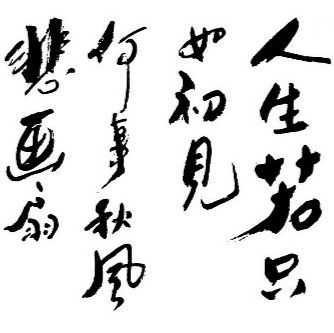 人生若只
如初見
何事秋風
悲画扇